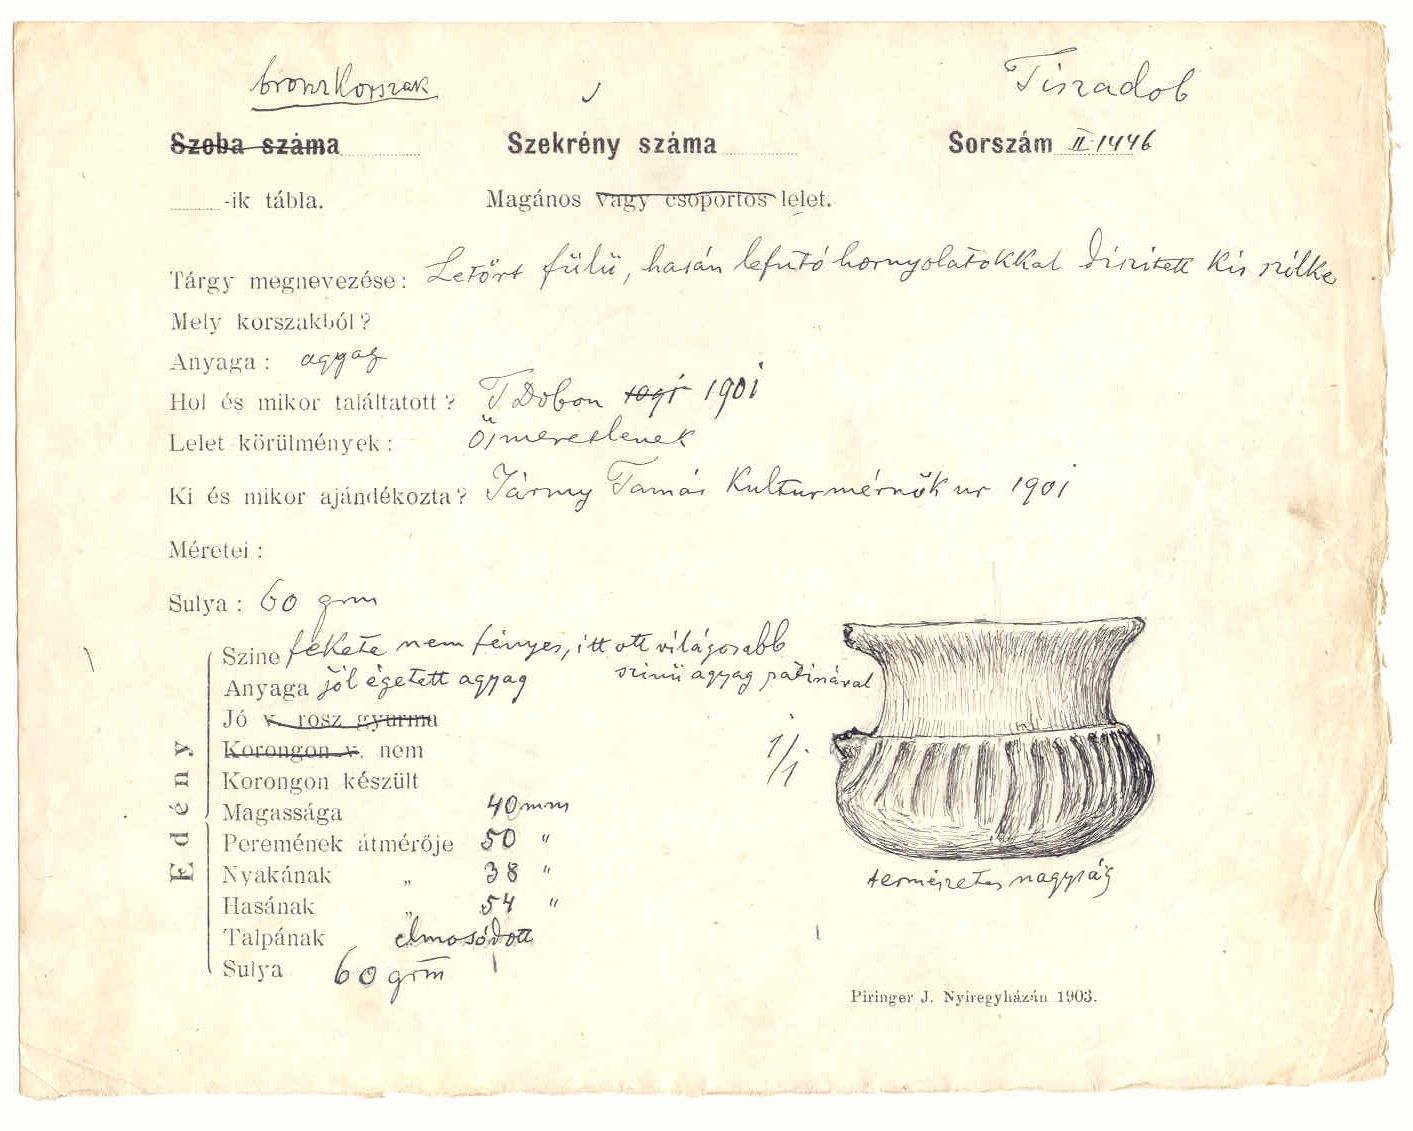 bronzkorszak Tiszadob
Szoba száma Szekrény száma Sorszám II 1446
-ik tábla. Magános vagy csoportos lelet.
Tárgy megnevezése: Letört fülü, hasán lefutó hornyolatokkal diszitett kis szilke
Mely korszakból?
Anyaga: agyag
Hol és mikor találtatott? T. Dobon 1901
Lelet körülmények: Ösmeretlenek
Ki és mikor ajándékozta? Jármy Tamás Kulturmérnök ur 1901
Méretei:
Sulya: 60 grm
Edény
Szine fekete nem fényes, itt ott világosabb
szinü agyag patinával
Anyaga jól égetett agyag
Jó v. rosz gyurma
Korongon v. nem
Korongon készült
Magassága 40 mm
Peremének átmérője 50 "
Nyakának „ 38 "
Hasának „ 54 "
Talpának elmosódott
Sulya 60 grm
1/1
természetes nagyság
Piringer J. Nyiregyházán 1903.